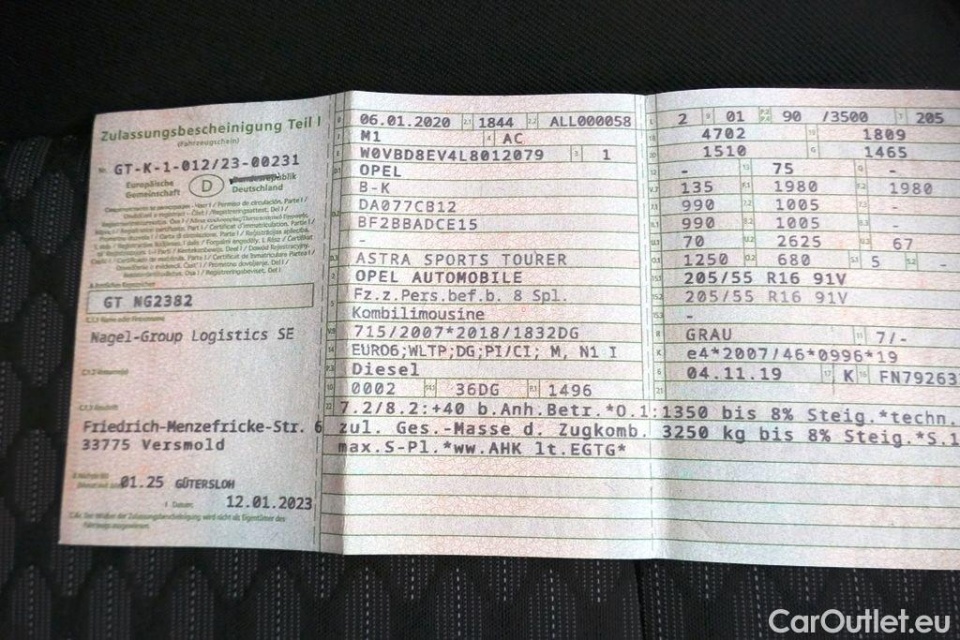 Zulassungsbescheinigung Teil I
(Fahrzeugschein)
Nr. GT-K-1-012/23-00231
Europäische
Gemeinschaft
D
Bundesrepublik
Deutschland
GT NG2382
Nagel-Group Logistics SE
Friedrich-Menzefricke-Str. 6
33775 Versmold
01.25 GÜTERSLOH
12.01.2023
06.01.2020 2.1 1844 2.2 ALL000058
M1 4 AC
W0VBD8EV4L8012079 3 1
OPEL
B-K
DA077CB12
BF2BBADCE15
-
ASTRA SPORTS TOURER
OPEL AUTOMOBILE
Fz.z.Pers.bef.b. 8 Spl.
Kombilimousine
715/2007*2018/1832DG
EURO6;WLTP;DG;PI/CI; M, N1 I
Diesel
0002 36DG 1496
2 01 90 /3500 205
4702 1809
1510 G 1465
- 75 -
135 1980 1980
990 1005 -
990 1005 -
70 2625 67
1250 680 5 -
205/55 R16 91V
205/55 R16 91V
-
GRAU 7/-
e4*2007/46*0996*19
04.11.19 K FN79263
7.2/8.2:+40 b.Anh.Betr.*O.1:1350 bis 8% Steig.*techn.
zul. Ges.-Masse d. Zugkomb. 3250 kg bis 8% Steig.*S.1
max.S-Pl.*ww.AHK lt.EGTG*
CarOutlet.eu